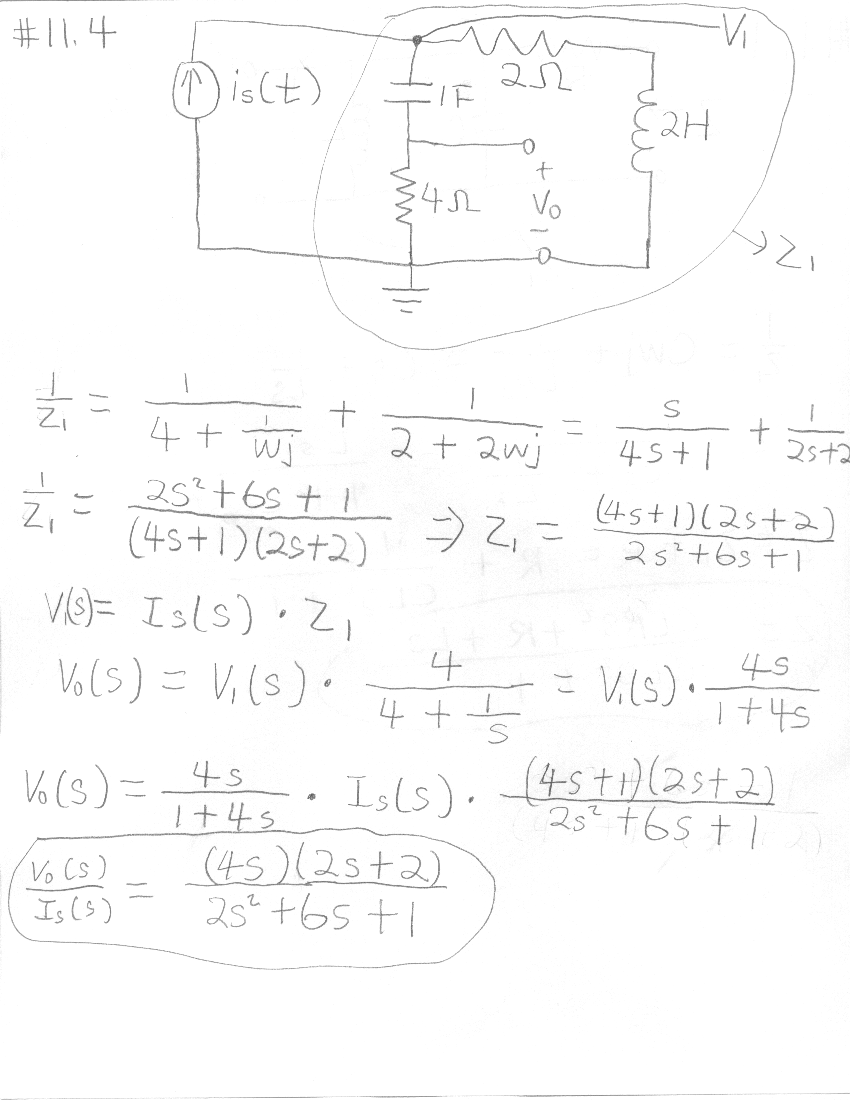 #11.4
V₁
2Ω
is(t)
1F
2H
+
4Ω
V₀
−
Z₁
1/Z₁ = 1/(4 + 1/wj) + 1/(2 + 2wj) = s/(4s+1) + 1/(2s+2
1/Z₁ = (2s²+6s+1)/((4s+1)(2s+2)) ⇒ Z₁ = ((4s+1)(2s+2))/(2s²+6s+1)
V₁(s) = Is(s) · Z₁
V₀(s) = V₁(s) · 4/(4 + 1/s) = V₁(s) · 4s/(1+4s)
V₀(s) = 4s/(1+4s) · Is(s) · ((4s+1)(2s+2))/(2s²+6s+1)
V₀(s)/Is(s) = ((4s)(2s+2))/(2s²+6s+1)